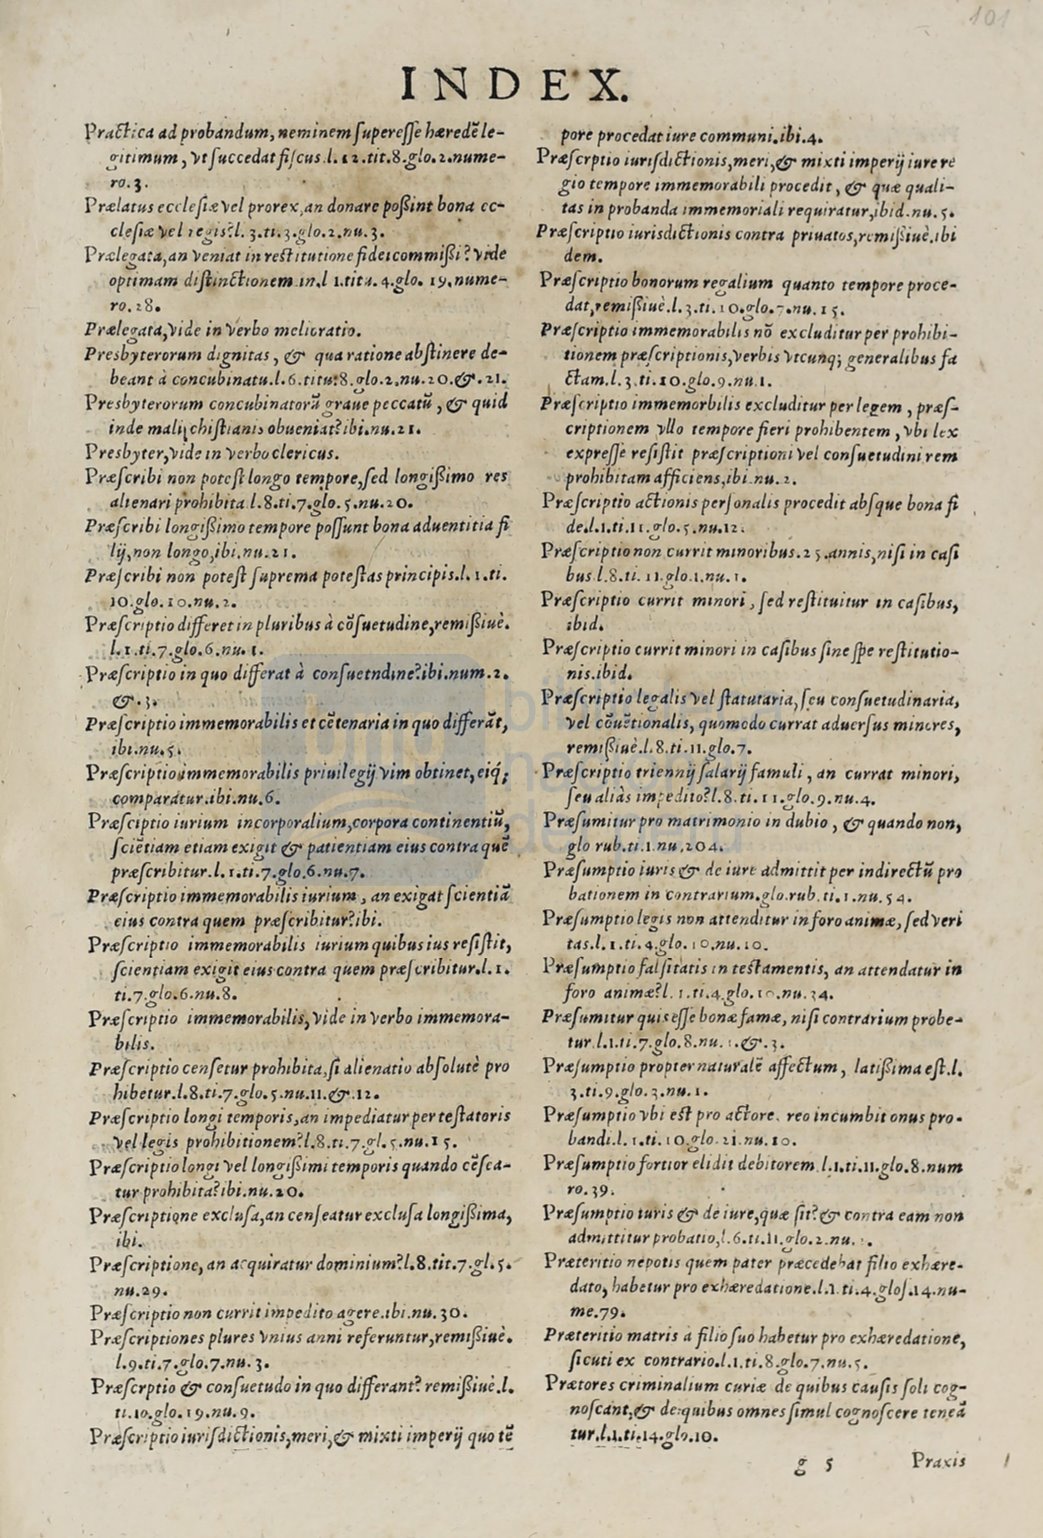 101
INDEX.
Practica ad probandum, neminem superesse hæredẽ le-
gitimum, vt succedat fiscus.l.12.tit.8.glo.2.nume-
ro.3.
Prælatus ecclesiæ vel prorex, an donare possint bona ec-
clesiæ vel regis?l.3.ti.3.glo.2.nu.3.
Prælegata, an veniat in restitutione fideicommissi? vide
optimam distinctionem in.l 1.titu.4.glo.19.nume-
ro.28.
Prælegata, vide in verbo melioratio.
Presbyterorum dignitas, & qua ratione abstinere de-
beant à concubinatu.l.6.titu.8.glo.2.nu.20.&.21.
Presbyterorum concubinatorũ graue peccatũ, & quid
inde mali christianis obueniat?ibi.nu.21.
Presbyter, vide in verbo clericus.
Præscribi non potest longo tempore, sed longissimo res
alienari prohibita l.8.ti.7.glo.5.nu.20.
Præscribi longissimo tempore possunt bona aduentitia fi
lij, non longo, ibi.nu.21.
Præscribi non potest suprema potestas principis.l.1.ti.
10.glo.10.nu.2.
Præscriptio differet in pluribus à cõsuetudine, remissiuè.
l.1.ti.7.glo.6.nu.1.
Præscriptio in quo differat à consuetndine?ibi.num.2.
&.3.
Præscriptio immemorabilis et cẽtenaria in quo differãt,
ibi.nu.5.
Præscriptio immemorabilis priuilegij vim obtinet, eiq́;
comparatur.ibi.nu.6.
Præsciptio iurium incorporalium, corpora continentiũ,
sciẽtiam etiam exigit & patientiam eius contra quẽ
præscribitur.l.1.ti.7.glo.6.nu.7.
Præscriptio immemorabilis iurium, an exigat scientiã
eius contra quem præscribitur?ibi.
Præscriptio immemorabilis iurium quibus ius resistit,
scientiam exigit eius contra quem præscribitur.l.1.
ti.7.glo.6.nu.8.
Præscriptio immemorabilis, vide in verbo immemora-
bilis.
Præscriptio censetur prohibita, si alienatio absolutè pro
hibetur.l.8.ti.7.glo.5.nu.11.&.12.
Præscriptio longi temporis, an impediatur per testatoris
vel legis prohibitionem?l.8.ti.7.gl.5.nu.15.
Præscriptio longi vel longissimi temporis quando cẽsea-
tur prohibita?ibi.nu.20.
Præscriptione exclusa, an censeatur exclusa longissima,
ibi.
Præscriptione, an acquiratur dominium?l.8.tit.7.gl.5.
nu.29.
Præscriptio non currit impedito agere.ibi.nu.30.
Præscriptiones plures vnius anni referuntur, remissiuè.
l.9.ti.7.glo.7.nu.3.
Præscrptio & consuetudo in quo differant? remissiuè.l.
ti.10.glo.19.nu.9.
Præscriptio iurisdictionis, meri, & mixti imperij quo tẽ
pore procedat iure communi.ibi.4.
Præscrptio iurisdictionis, meri, & mixti imperij iure re
gio tempore immemorabili procedit, & quæ quali-
tas in probanda immemoriali requiratur, ibid.nu.5.
Præscriptio iurisdictionis contra priuatos, remissiuè.ibi
dem.
Præscriptio bonorum regalium quanto tempore proce-
dat, remissiuè.l.3.ti.10.glo.7.nu.15.
Præscriptio immemorabilis nõ excluditur per prohibi-
tionem præscriptionis, verbis vtcunq; generalibus fa
ctam.l.3.ti.10.glo.9.nu.1.
Præscriptio immemorbilis excluditur per legem, præs-
criptionem vllo tempore fieri prohibentem, vbi lex
expresse resistit præscriptioni vel consuetudini rem
prohibitam afficiens, ibi.nu.2.
Præscriptio actionis personalis procedit absque bona fi
de.l.1.ti.11.glo.5.nu.12.
Præscriptio non currit minoribus.25.annis, nisi in casi
bus l.8.ti.11.glo.1.nu.1.
Præscriptio currit minori, sed restituitur in casibus,
ibid.
Præscriptio currit minori in casibus sine spe restitutio-
nis.ibid.
Præscriptio legalis vel statutaria, seu consuetudinaria,
vel cõuẽtionalis, quomodo currat aduersus minores,
remissiuè.l.8.ti.11.glo.7.
Præscriptio triennij salarij famuli, an currat minori,
seu aliàs impedito?l.8.ti.11.glo.9.nu.4.
Præsumitur pro matrimonio in dubio, & quando non,
glo rub.ti.1.nu.204.
Præsumptio iuris & de iure admittit per indirectũ pro
bationem in contrarium.glo.rub.ti.1.nu.54.
Præsumptio legis non attenditur in foro animæ, sed veri
tas.l.1.ti.4.glo.10.nu.10.
Præsumptio falsitatis in testamentis, an attendatur in
foro animæ?l.1.ti.4.glo.10.nu.34.
Præsumitur quis esse bonæ famæ, nisi contrarium probe-
tur.l.1.ti.7.glo.8.nu. .&.3.
Præsumptio propter naturalẽ affectum, latissima est.l.
3.ti.9.glo.3.nu.1.
Præsumptio vbi est pro actore. reo incumbit onus pro-
bandi.l.1.ti.10.glo.21.nu.10.
Præsumptio fortior elidit debitorem.l.1.ti.11.glo.8.num
ro.39.
Præsumptio iuris & de iure, quæ sit? & contra eam non
admittitur probatio, l.6.ti.11.glo.2.nu.
Præteritio nepotis quem pater præcedebat filio exhære-
dato, habetur pro exhæredatione.l.1.ti.4.glos.14.nu-
me.79.
Præteritio matris a filio suo habetur pro exhæredatione,
sicuti ex contrario.l.1.ti.8.glo.7.nu.5.
Prætores criminalium curiæ de quibus causis soli cog-
noscant, & de quibus omnes simul cognoscere teneã
tur.l.1.ti.14.glo.10.
g 5 Praxis